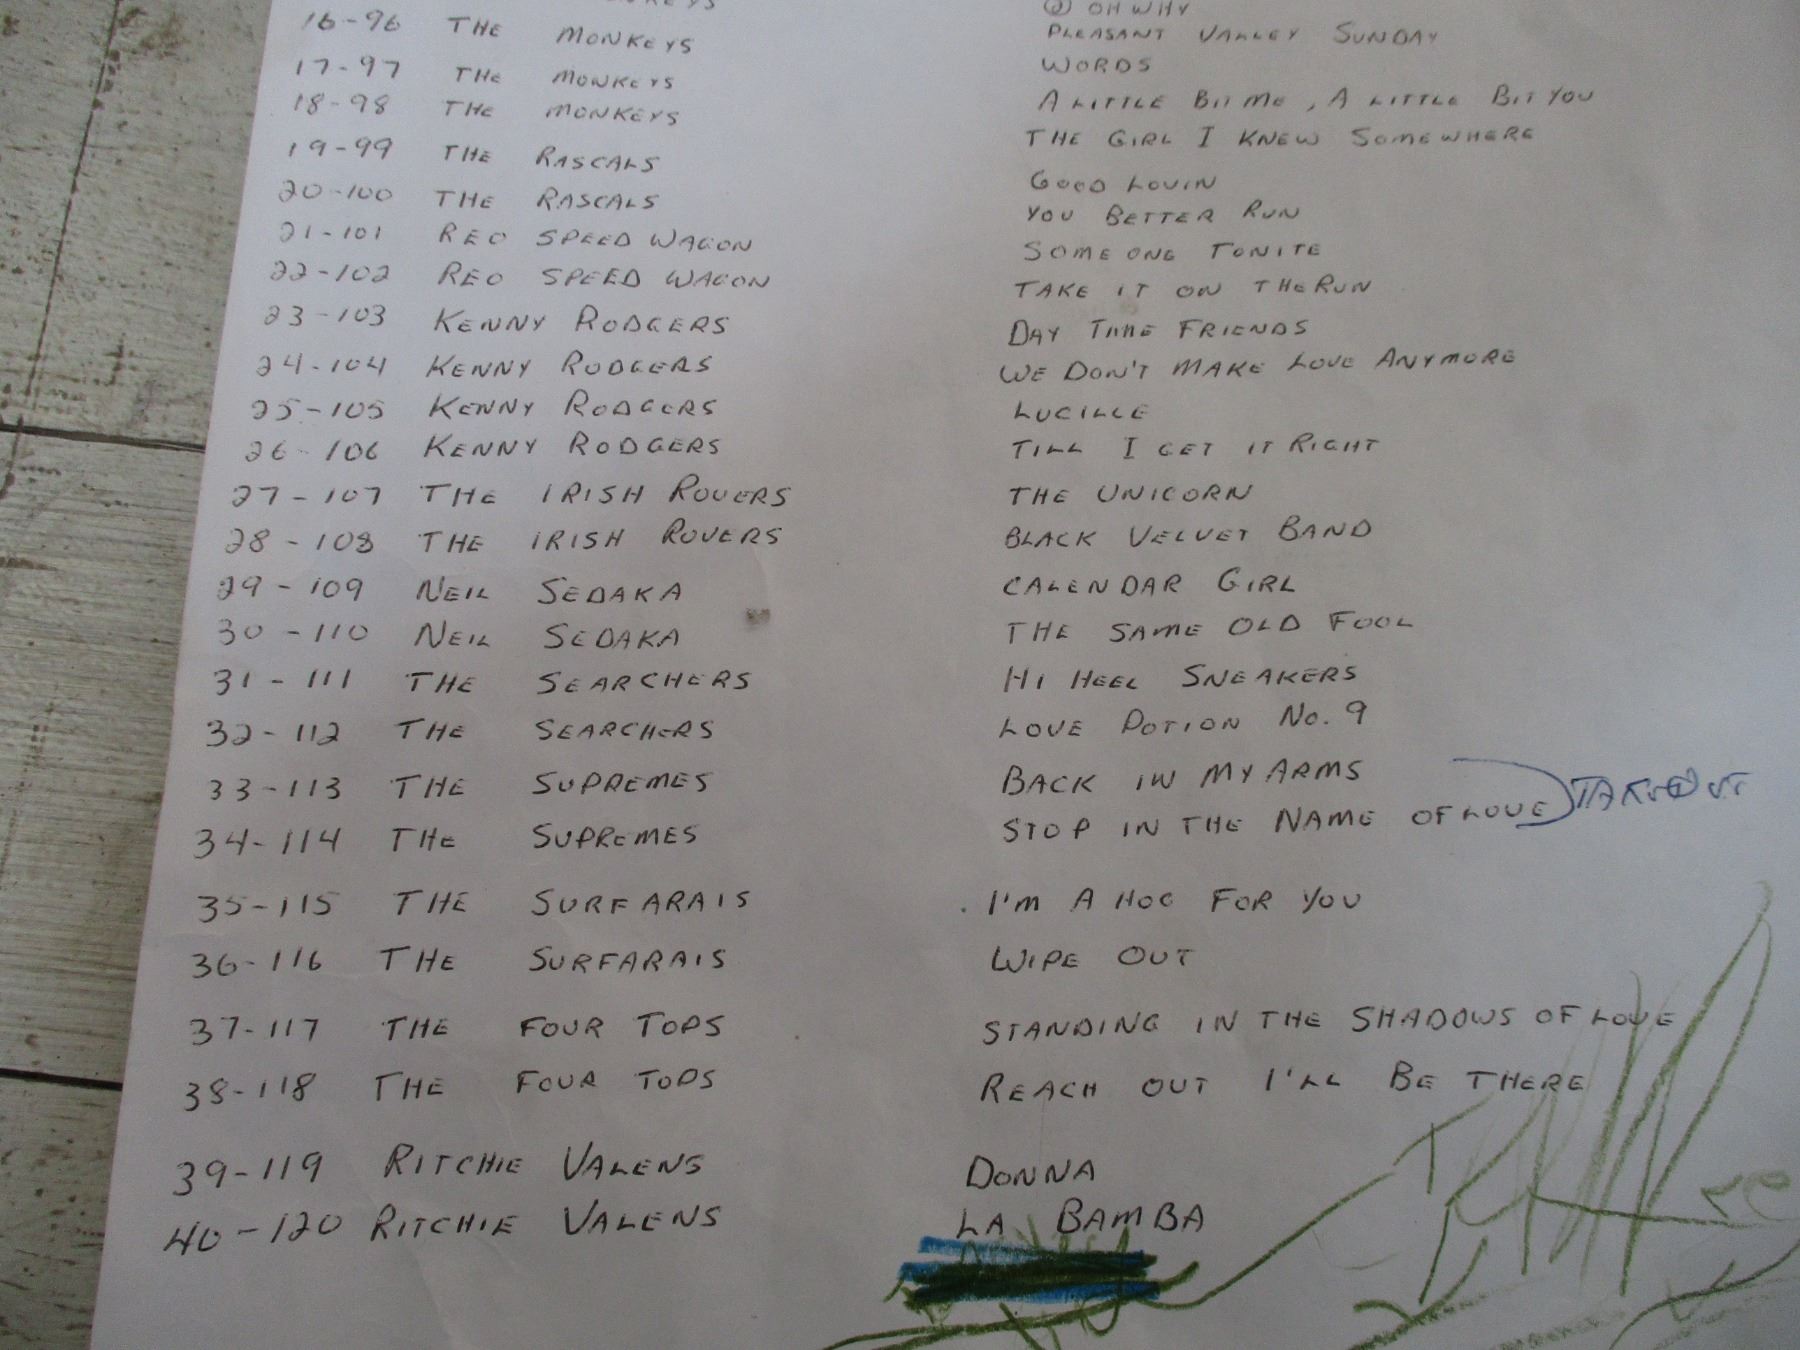 OH WHY
16-96 THE MONKEYS PLEASANT VALLEY SUNDAY
17-97 THE MONKEYS WORDS
18-98 THE MONKEYS A LITTLE BIT ME, A LITTLE BIT YOU
19-99 THE RASCALS THE GIRL I KNEW SOMEWHERE
20-100 THE RASCALS GOOD LOVIN
21-101 REO SPEED WAGON YOU BETTER RUN
22-102 REO SPEED WAGON SOME ONE TONITE
23-103 KENNY RODGERS TAKE IT ON THE RUN
24-104 KENNY RODGERS DAY TIME FRIENDS
25-105 KENNY RODGERS WE DON'T MAKE LOVE ANYMORE
26-106 KENNY RODGERS LUCILLE
TILL I GET IT RIGHT
27-107 THE IRISH ROVERS THE UNICORN
28-108 THE IRISH ROVERS BLACK VELVET BAND
29-109 NEIL SEDAKA CALENDAR GIRL
30-110 NEIL SEDAKA THE SAME OLD FOOL
31-111 THE SEARCHERS HI HEEL SNEAKERS
32-112 THE SEARCHERS LOVE POTION No. 9
33-113 THE SUPREMES BACK IN MY ARMS
34-114 THE SUPREMES STOP IN THE NAME OF LOVE TAKE OUT
35-115 THE SURFARAIS I'M A HOG FOR YOU
36-116 THE SURFARAIS WIPE OUT
37-117 THE FOUR TOPS STANDING IN THE SHADOWS OF LOVE
38-118 THE FOUR TOPS REACH OUT I'LL BE THERE
39-119 RITCHIE VALENS DONNA
40-120 RITCHIE VALENS LA BAMBA